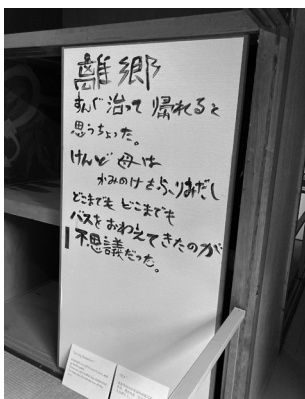 離郷
すんぐ治って 帰れると
思うちょった。
けんど 母は
かみのけもふりみだし
どこまでも どこまでも
バスをおわえてきたのが
不思議だった。